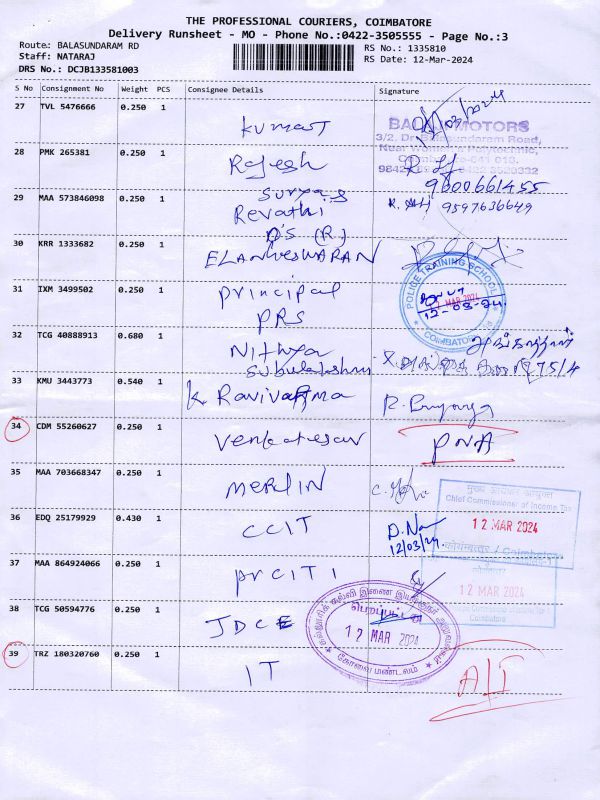 THE PROFESSIONAL COURIERS, COIMBATORE
Delivery Runsheet - MO - Phone No.:0422-3505555 - Page No.:3
Route: BALASUNDARAM RD
Staff: NATARAJ
DRS No.: DCJB133581003
RS No.: 1335810
RS Date: 12-Mar-2024
S No Consignment No Weight PCS Consignee Details Signature
27 TVL 5476666 0.250 1
kumar
BALAJI MOTORS
3/2, Dr. Balasundaram Road,
28 PMK 265381 0.250 1
Rajesh
9600661455
29 MAA 573846098 0.250 1
Surya
Revathi
9597636649
30 KRR 1333682 0.250 1
DS (R)
ELANGESWARAN
31 IXM 3499502 0.250 1
principal
PRS
POLICE TRAINING SCHOOL
COIMBATORE
MAR 2024
12-03-24
32 TCG 40888913 0.680 1
Nithya
Subulakshmi
75/4
33 KMU 3443773 0.540 1
K Ravivarma
34 CDM 55260627 0.250 1
Venkatesan
PNA
35 MAA 703668347 0.250 1
MERLIN
मुख्य आयकर आयुक्त
Chief Commissioner of Income Tax
12 MAR 2024
36 EDQ 25179929 0.430 1
CCIT
12/03/24
कोयम्बत्तूर / Coimbatore
37 MAA 864924066 0.250 1
PrCIT 1
12 MAR 2024
Coimbatore
38 TCG 50594776 0.250 1
JDCE
12 MAR 2024
கோவை மண்டலம்
39 TRZ 180320760 0.250 1
IT